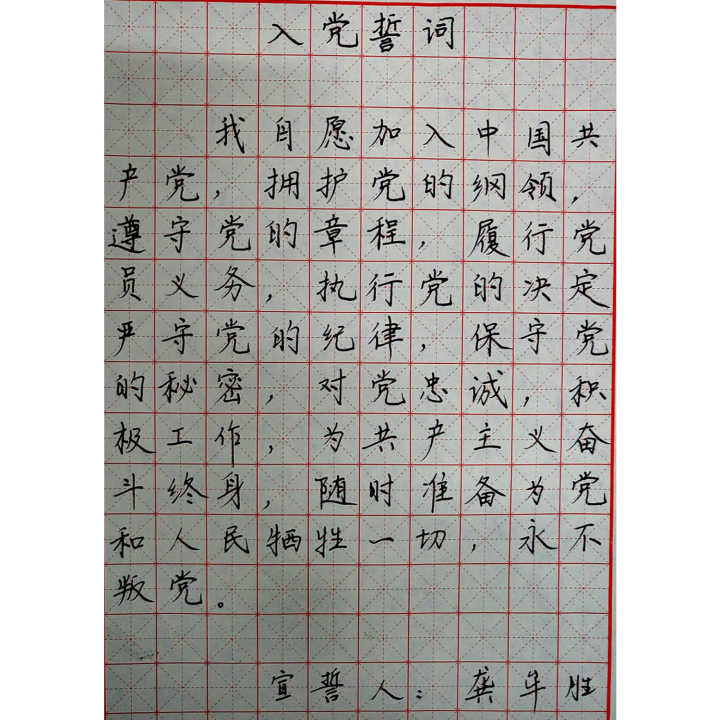 入党誓词
我自愿加入中国共
产党，拥护党的纲领，
遵守党的章程，履行党
员义务，执行党的决定
严守党的纪律，保守党
的秘密，对党忠诚，积
极工作，为共产主义奋
斗终身，随时准备为党
和人民牺牲一切，永不
叛党。
宣誓人：龚牟胜